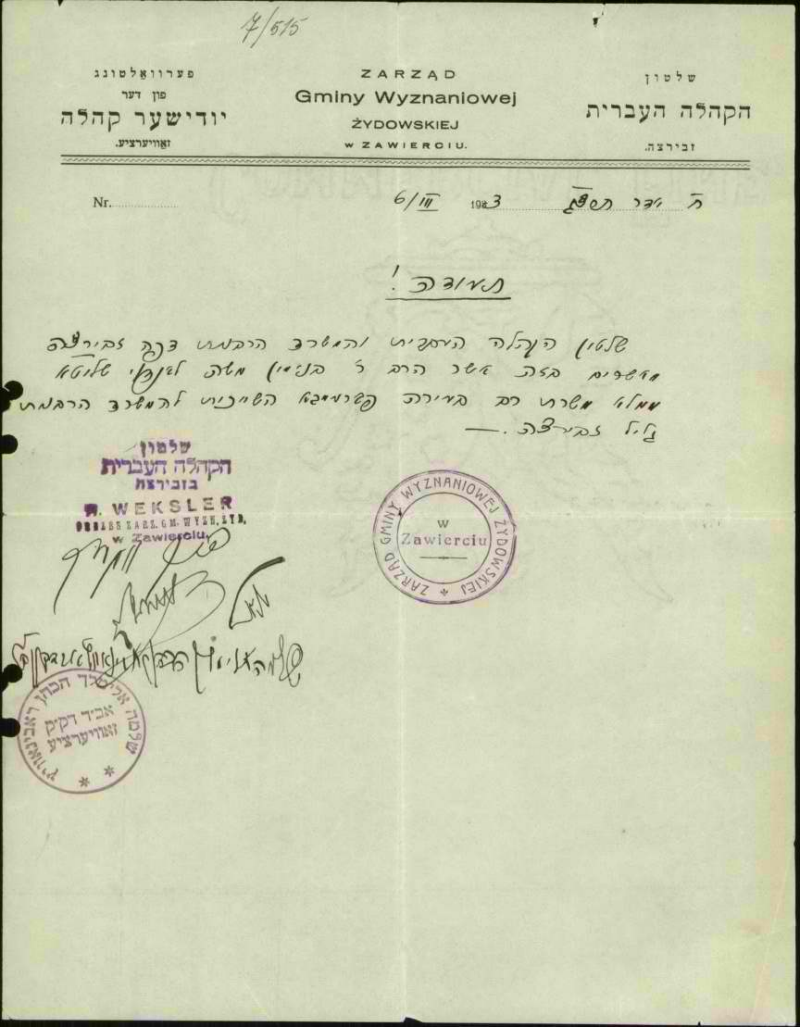 7/515
פערוואלטונג
פון דער
יודישער קהלה
זאוויערציע.
ZARZĄD
Gminy Wyznaniowej
ŻYDOWSKIEJ
W ZAWIERCIU.
שלטון
הקהלה העברית
זבירצה.
Nr.
6/III 1933
ח' אדר תרצג
תעודה!
שלטון הקהלה העברית והמשרד הרבנות דפה זבירצה
מאשרים בזה אשר הרב ר' בנימין משה שליטא
ממלא משרת רב בעירה השייכית להמשרד הרבנות
גליל זבירצה.
שלטון
הקהלה העברית
בזבירצה
WEKSLER
ZARZ. GM. WYZN. ŻYD.
w Zawierciu
ZARZĄD GMINY WYZNANIOWEJ ŻYDOWSKIEJ
w
Zawierciu
שלמה אלימלך הכהן ראבינאוויץ
אב"ד דק"ק
זאוויערציע